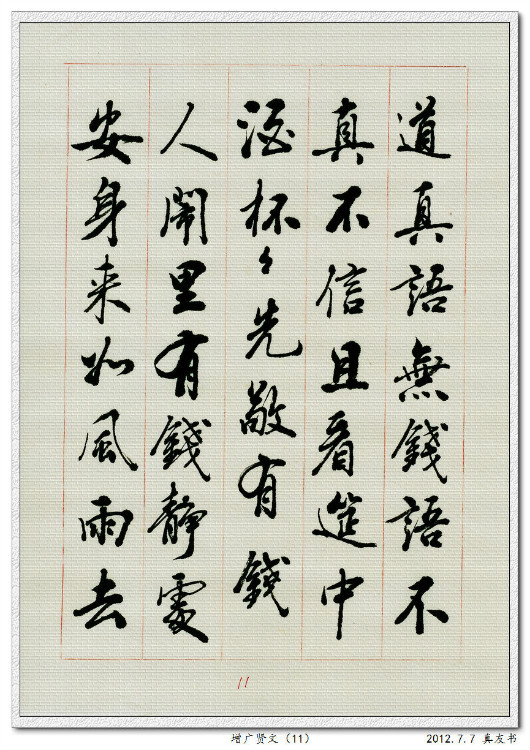 道真語無錢語不
真不信且看筵中
酒杯々先敬有錢
人鬧里有錢靜處
安身来如風雨去
11
增广贤文（11）
2012.7.7 真友书